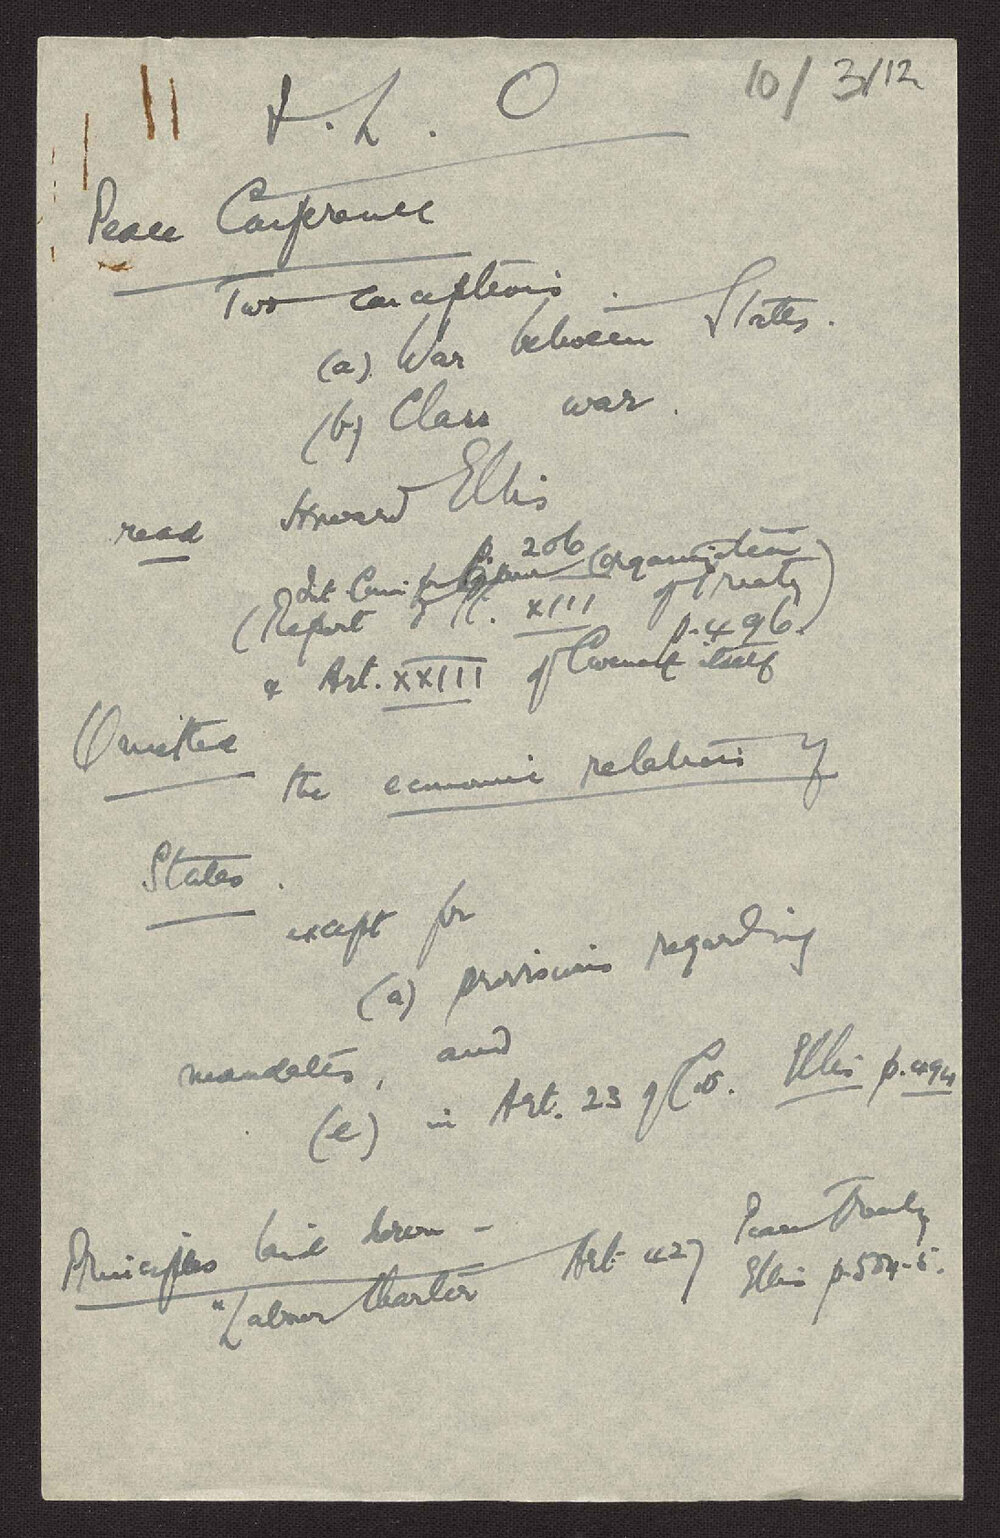 10/3/12
I. L. O
Peace Conference
Two conceptions.
(a) War between States.
(b) Class war.
read Howard Ellis
p. 206
(Report of Int. Com. for Organisation
Pt. XIII of Treaty)
p. 496.
& Art. XXIII of Covenant itself
Omitted
the economic relations of
States.
except for
(a) provisions regarding
mandates, and
(e) in Art. 23 of Cov. Ellis p. 494
Principles laid down –
Art 427 Peace Treaty
"Labour Charter
Ellis p. 504-5.